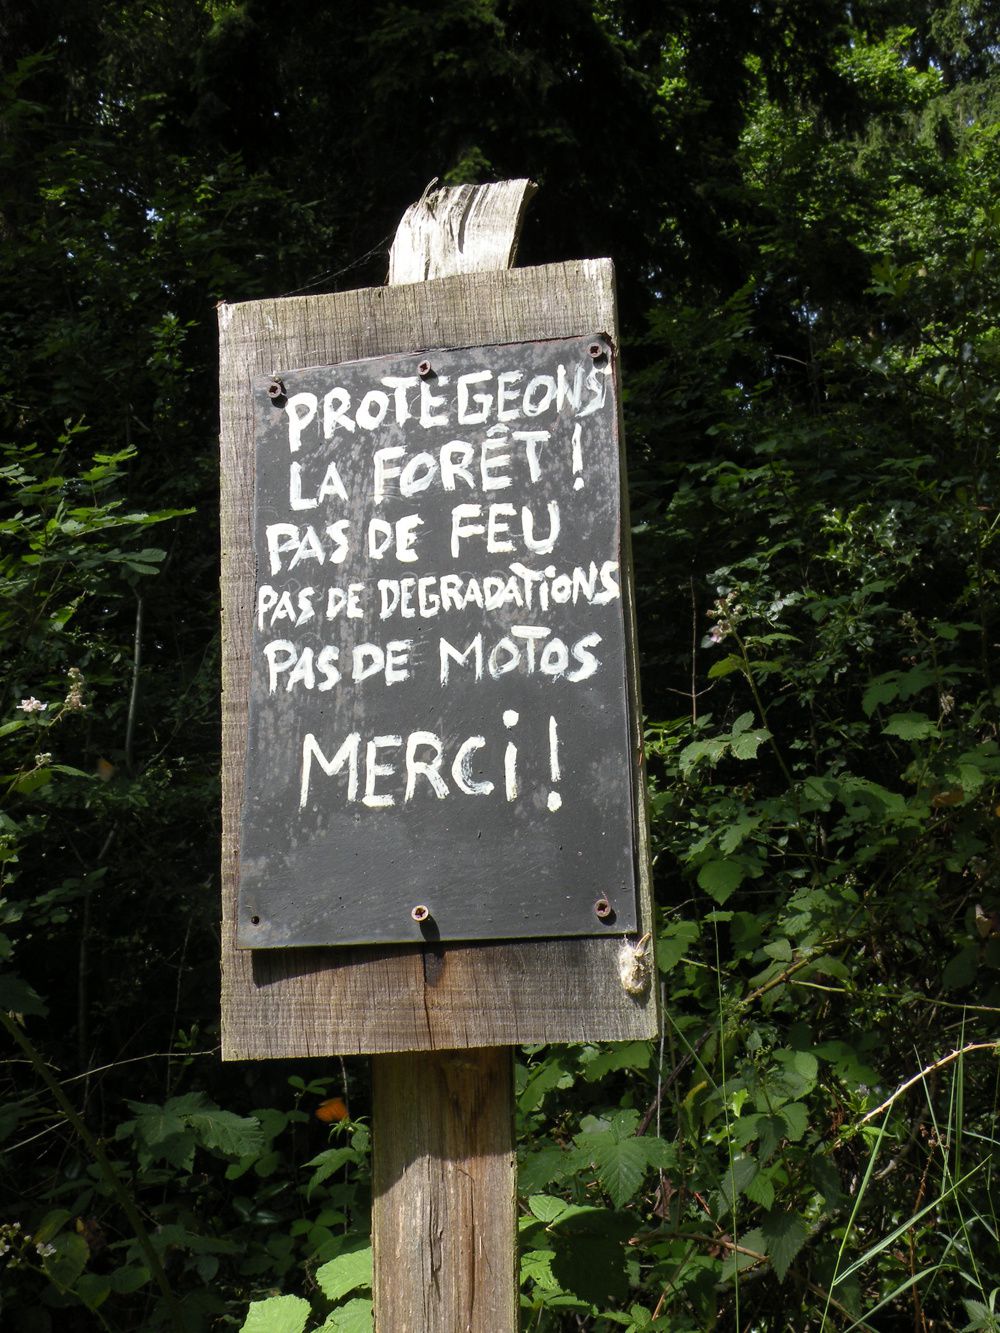 PROTEGEONS
LA FORÊT !
PAS DE FEU
PAS DE DEGRADATIONS
PAS DE MOTOS
MERCi !